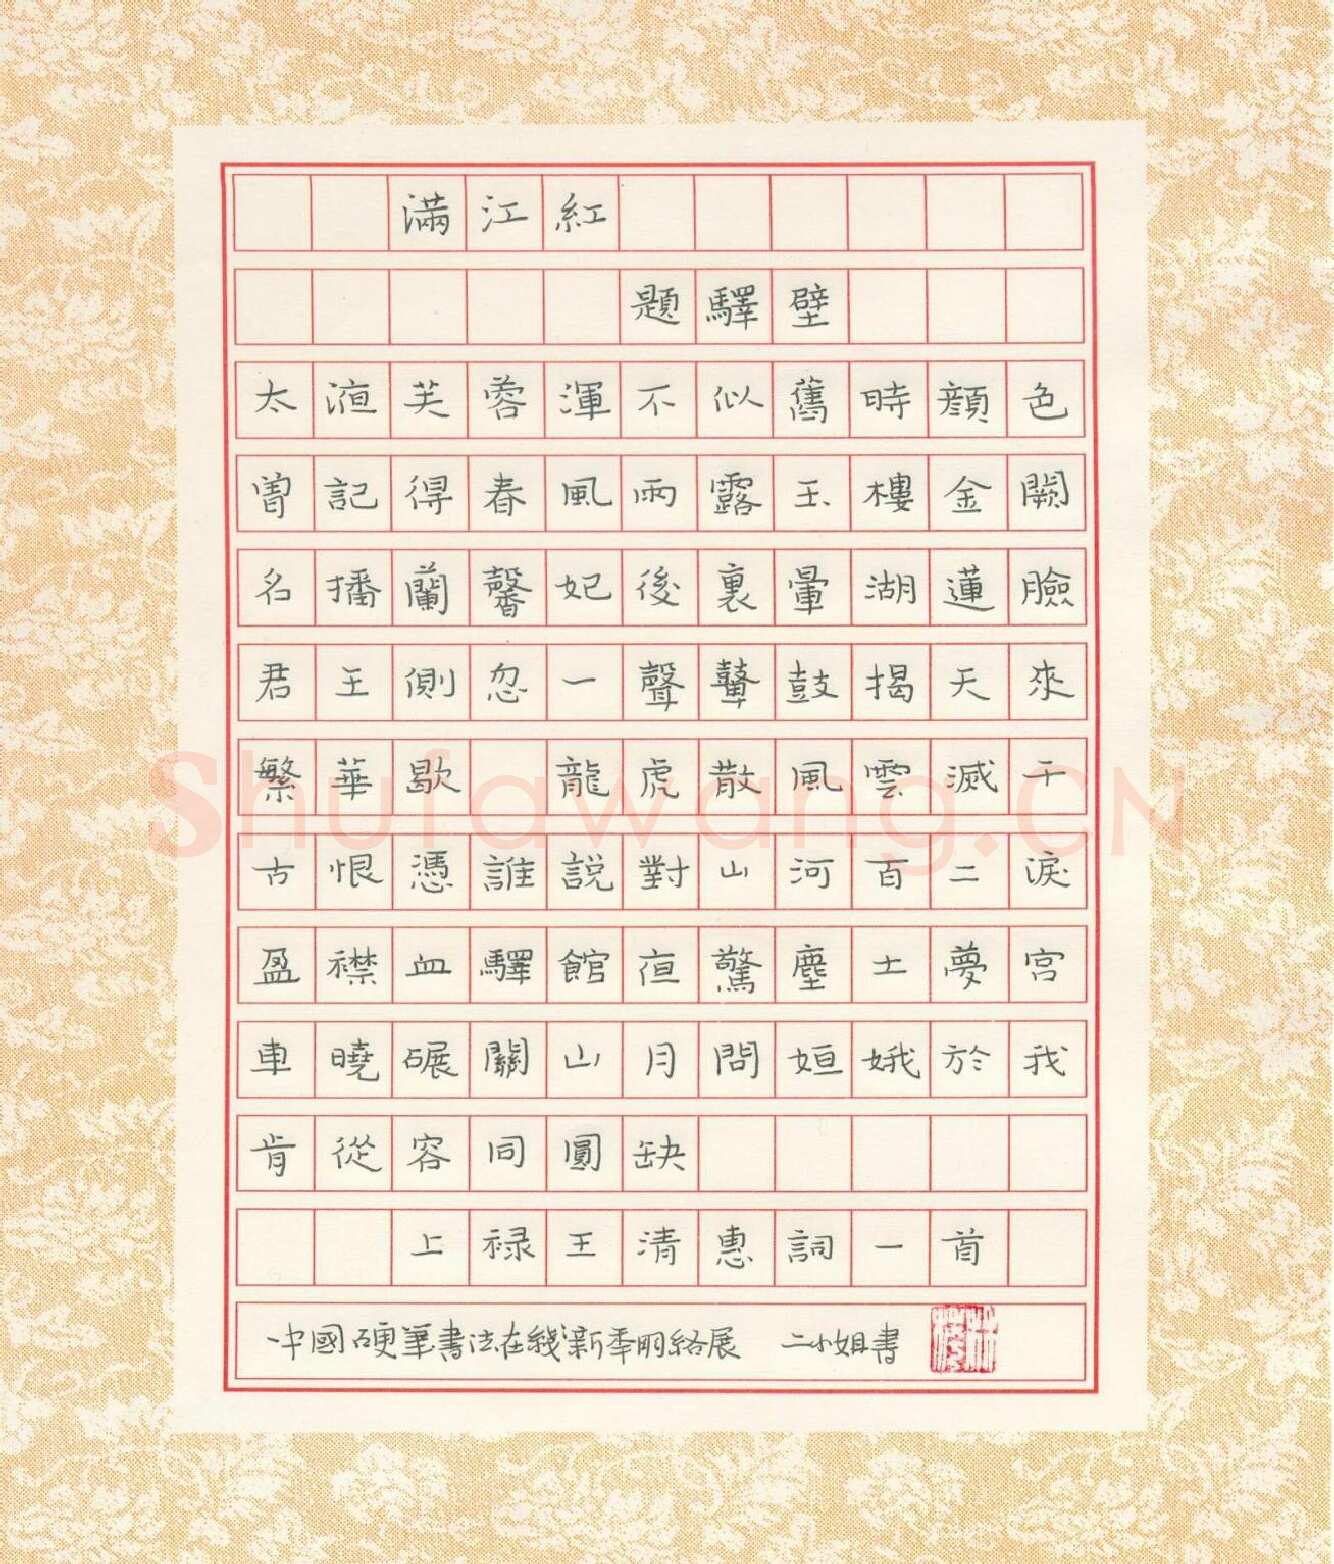 滿江紅
題驛壁
太液芙蓉渾不似舊時顏色
曾記得春風雨露玉樓金闕
名播蘭馨妃後裏暈湖蓮臉
君王側忽一聲鼙鼓揭天來
繁華歇 龍虎散風雲滅千
古恨憑誰說對山河百二淚
盈襟血驛館夜驚塵土夢宮
車曉碾關山月問姮娥於我
肯從容同圓缺
上禄王清惠詞一首
中國硬筆書法在綫新季网絡展 二小姐書
Shufawang.CN